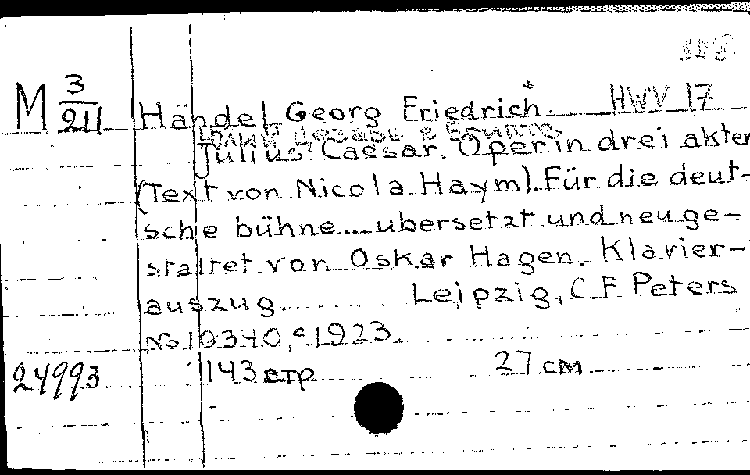 M 3/211
Händel Georg Friedrich. HWV 17
Julius Caesar. Oper in drei akten
(Text von Nicola Haym). Für die deut-
sche bühne ... ubersetzt und neu ge-
staltet von Oskar Hagen. Klavier-
auszug. Leipzig, C.F. Peters
No. 10340, c 1923.
24993 143 стр 27 см